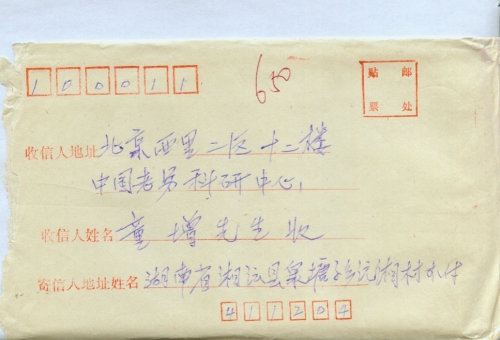 100011
650
贴 邮
票 处
收信人地址 北京西里二区十二楼
中国老另科研中心,
收信人姓名 童增先生收
寄信人地址姓名 湖南省湘江县泉塘子乡沅湘村
411204